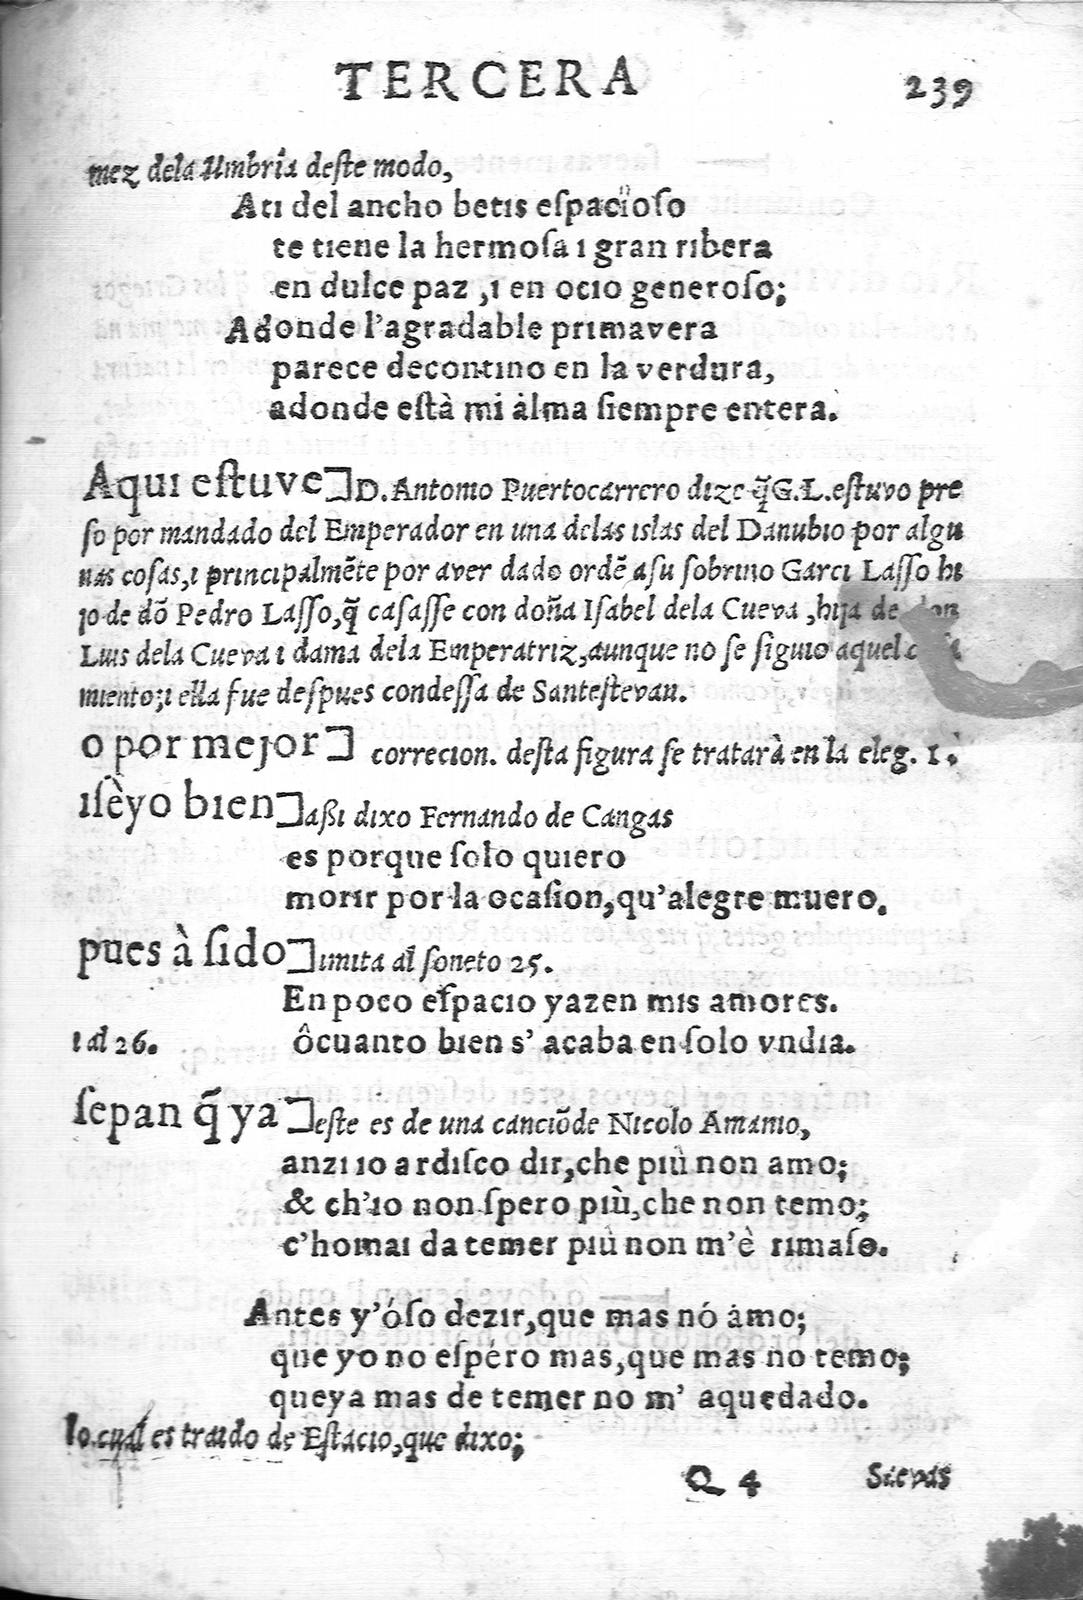 TERCERA 239
mez dela Umbria deste modo,
Ati del ancho betis eſpacioſo
te tiene la hermoſa ı gran ribera
en dulce paz ,ı en ocio generoſo;
Adonde l'agradable primavera
parece decontino en la verdura,
adonde eſtà mi alma ſiempre entera.
Aqui eſtuve] D. Antonio Puertocarrero dize q̃ G. L. eſtuvo pre
ſo por mandado del Emperador en una delas islas del Danubio por algu
nas coſas,ı principalmẽte por aver dado ordẽ aſu ſobrino Garci Laſſo hi
jo de dõ Pedro Laſſo,q̃ caſaſſe con doña Iſabel dela Cueva ,hija de don
Luis dela Cueva ı dama dela Emperatriz,aunque no ſe ſiguio aquel
miento;ı ella fue deſpues condeſſa de Santeſtevan.
o por mejor] correcion. deſta figura ſe tratarà en la eleg. 1.
ıſèyo bien] aßi dixo Fernando de Cangas
es porque ſolo quiero
morir por la ocaſion,qu'alegre muero.
pues à ſido] imita al ſoneto 25.
En poco eſpacio yazen mis amores.
ı al 26. ôcuanto bien s' acaba en ſolo vndia.
ſepan q̃ ya] eſte es de una canciõde Nicolo Amanio,
anzi io ardiſco dir,che più non amo;
& ch'io non ſpero più,che non temo;
c'homai da temer più non m'è rimaſo.
Antes y'óſo dezir,que mas nó amo;
que yo no eſpéro mas,que mas no temo;
queya mas de temer no m' aquedado.
lo cual es traido de Eſtacio,que dixo;
Q 4 Saevas